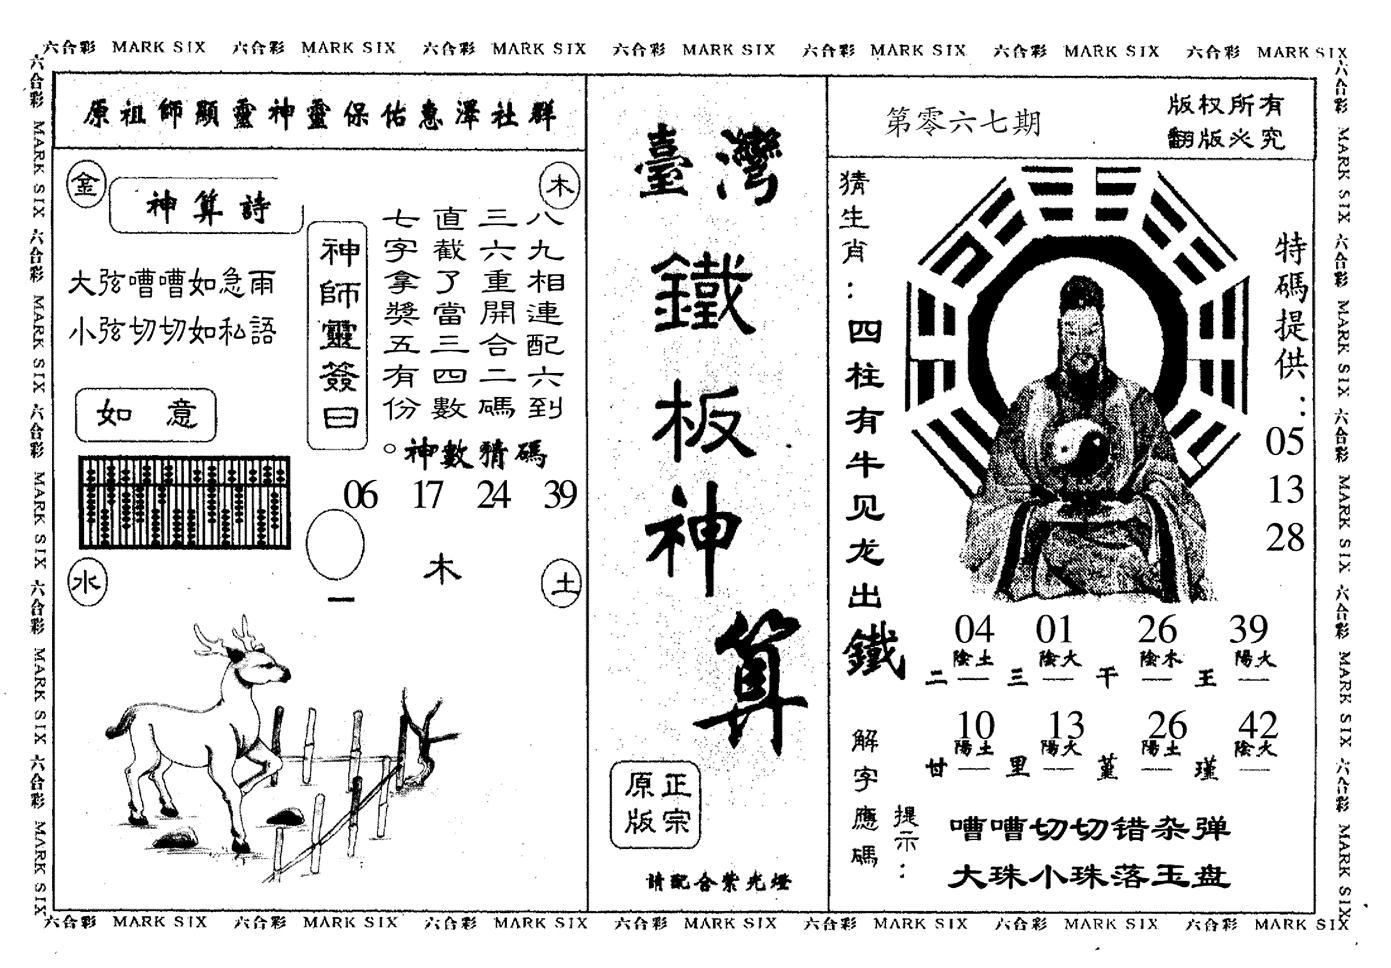 六合彩 MARK SIX 六合彩 MARK SIX 六合彩 MARK SIX 六合彩 MARK SIX 六合彩 MARK SIX 六合彩 MARK SIX 六合彩 MARK SIX
六合彩 MARK SIX 六合彩 MARK SIX 六合彩 MARK SIX 六合彩 MARK SIX 六合彩 MARK SIX
原祖師顯靈神靈保佑惠澤社群
金
木
神算詩
大弦嘈嘈如急雨
小弦切切如私語
如意
神師靈簽曰
八九相連配六到
三六重開合二碼
直截了當三四數
七字拿獎五有份。
神數猜碼
06 17 24 39
木
水
土
一
臺灣
鐵
板
神
算
正宗
原版
請配合紫光燈
第零六七期
版权所有
翻版必究
猜生肖：四柱有牛见龙出鐵
特碼提供：
05
13
28
04 01 26 39
陰土 陰火 陰木 陽火
二一 三一 干一 王一
10 13 26 42
陽土 陽火 陽土 陰火
廿一 里一 堇一 瑾一
解字應碼
提示：
嘈嘈切切错杂弹
大珠小珠落玉盘
六合彩 MARK SIX 六合彩 MARK SIX 六合彩 MARK SIX 六合彩 MARK SIX 六合彩 MARK SIX
六合彩 MARK SIX 六合彩 MARK SIX 六合彩 MARK SIX 六合彩 MARK SIX 六合彩 MARK SIX 六合彩 MARK SIX 六合彩 MARK SIX